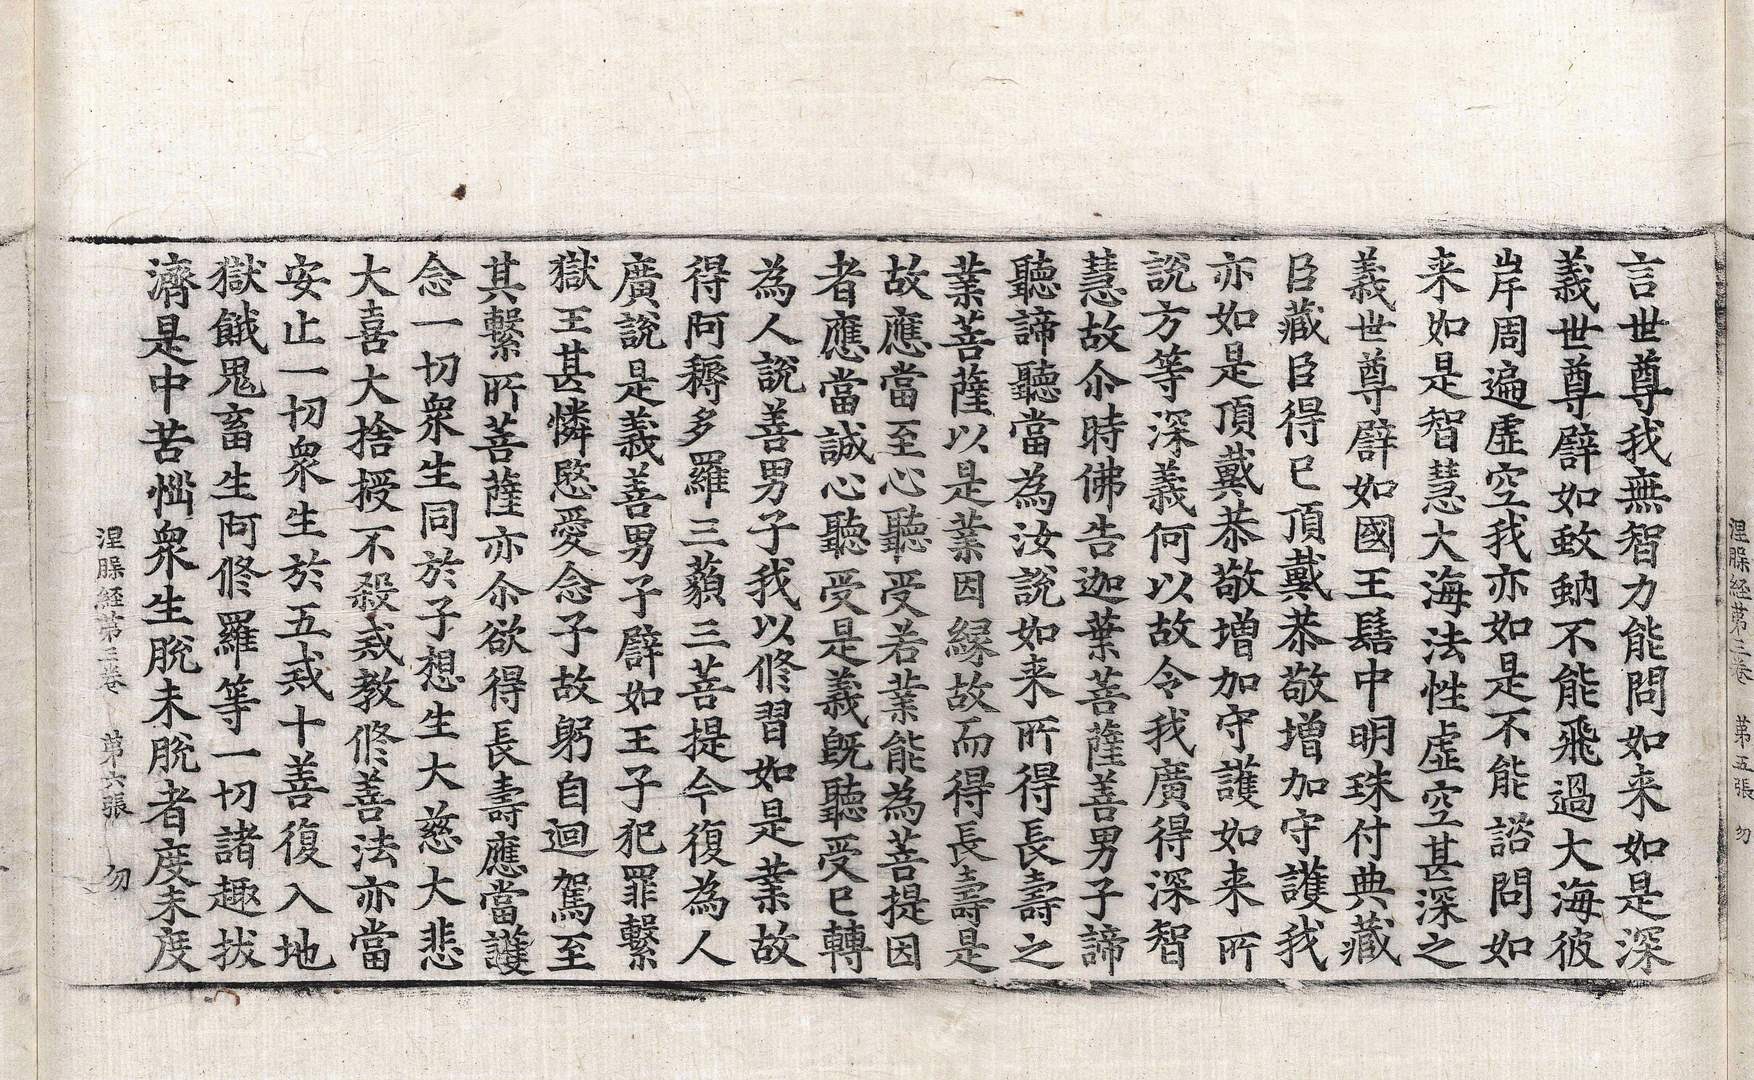 涅槃経第三卷　第五張　勿
言世尊我無智力能問如来如是深
義世尊譬如蚊蚋不能飛過大海彼
岸周遍虛空我亦如是不能諮問如
来如是智慧大海法性虛空甚深之
義世尊譬如國王髻中明珠付典藏
臣藏臣得已頂戴恭敬增加守護我
亦如是頂戴恭敬增加守護如来所
說方等深義何以故令我廣得深智
慧故尒時佛告迦葉菩薩善男子諦
聽諦聽當為汝說如来所得長壽之
業菩薩以是業因緣故而得長壽是
故應當至心聽受若業能為菩提因
者應當誠心聽受是義旣聽受已轉
為人說善男子我以修習如是業故
得阿耨多羅三藐三菩提今復為人
廣說是義善男子譬如王子犯罪繫
獄王甚憐愍愛念子故躬自迴駕至
其繫所菩薩亦尒欲得長壽應當護
念一切衆生同於子想生大慈大悲
大喜大捨授不殺戒教修善法亦當
安止一切衆生於五戒十善復入地
獄餓鬼畜生阿修羅等一切諸趣拔
濟是中苦惱衆生脫未脫者度未度
涅槃経第三卷　第六張　勿